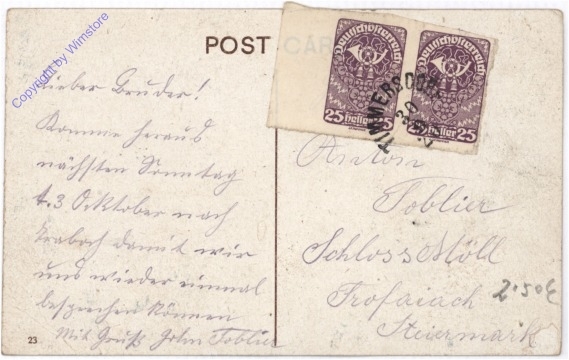 Copyright by Wimstore
POST CARD
Deutschösterreich
25 heller 25
Deutschösterreich
25 heller 25
TIMMERSDORF
Lieber Bruder!
Komme heraus
nächsten Sonntag
d. 3 Ocktober nach
Kraboch damit wir
uns wieder einmal
besprechen können
Mit Gruß John Toblier
23
Anton
Toblier
Schloss Möll
Trofaiach
Steiermark
2.50€